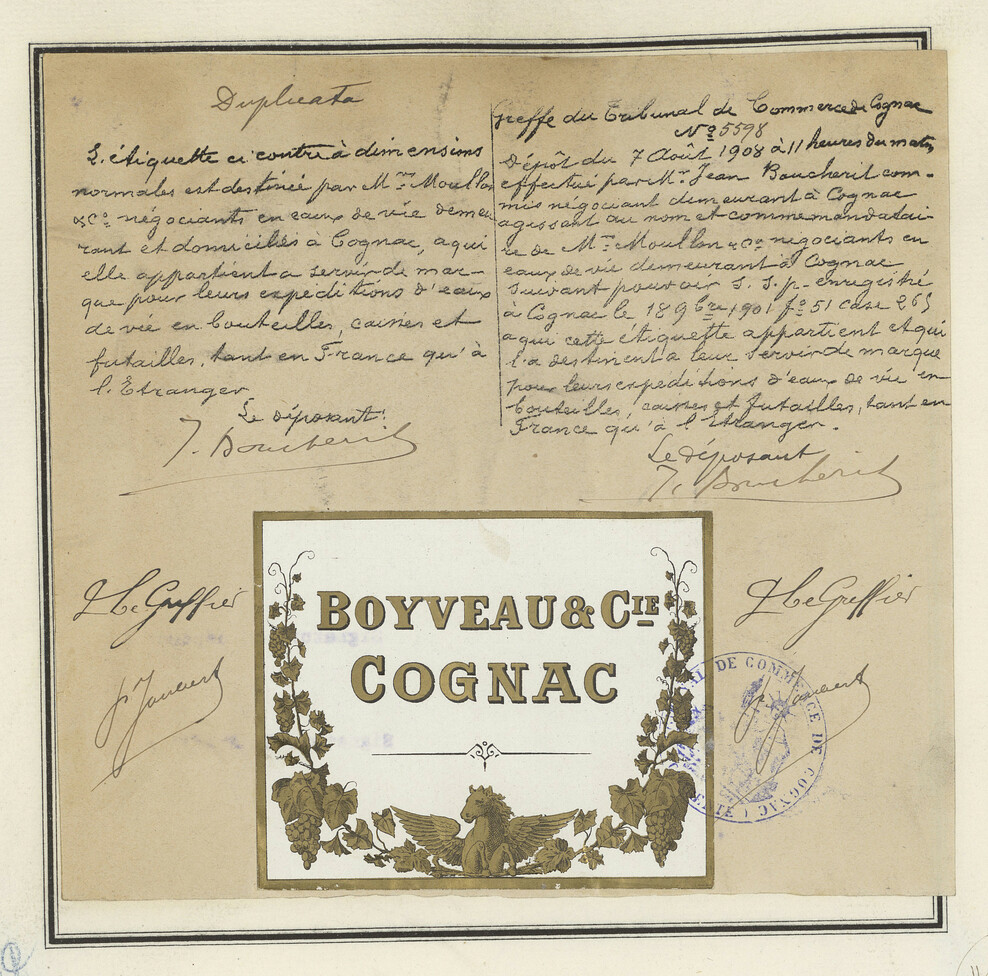 Duplicata
L'étiquette ci contre à dimensions
normales est destinée par Mrs Moullon
& Co négociants en eaux de vie demeu
rant et domiciliés à Cognac, a qui
elle appartient a servir de mar-
que pour leurs expéditions d'eaux
de vie en bouteilles, caisses et
futailles, tant en France qu'à
l'Etranger
Le déposant:
J. Boucherit
Greffe du Tribunal de Commerce de Cognac
No 5598
Dépôt du 7 Août 1908 à 11 heures du matin
effectué par Mr Jean Boucherit com-
mis négociant demeurant à Cognac
agissant au nom et comme mandatai-
re de Mrs Moullon & Co négociants en
eaux de vie demeurant à Cognac
suivant pouvoir S. S. p. enregistré
à Cognac le 18 9bre 1901 fo 51 case 265
a qui cette étiquette appartient et qui
l'a destinent a leur servir de marque
pour leurs expeditions d'eaux de vie en
bouteilles, caisses et futailles, tant en
France qu'à l'Etranger.
Le déposant
J. Boucherit
Le Greffier
Le Greffier
BOYVEAU & CIE
COGNAC
DE COMMERCE DE COGNAC